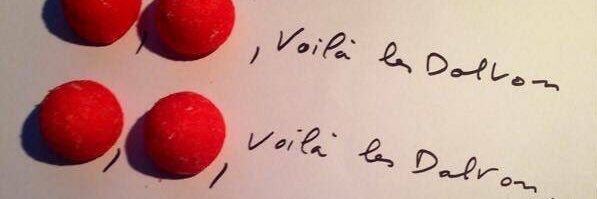 , , Voilà les Dalton
, , Voilà les Dalton.